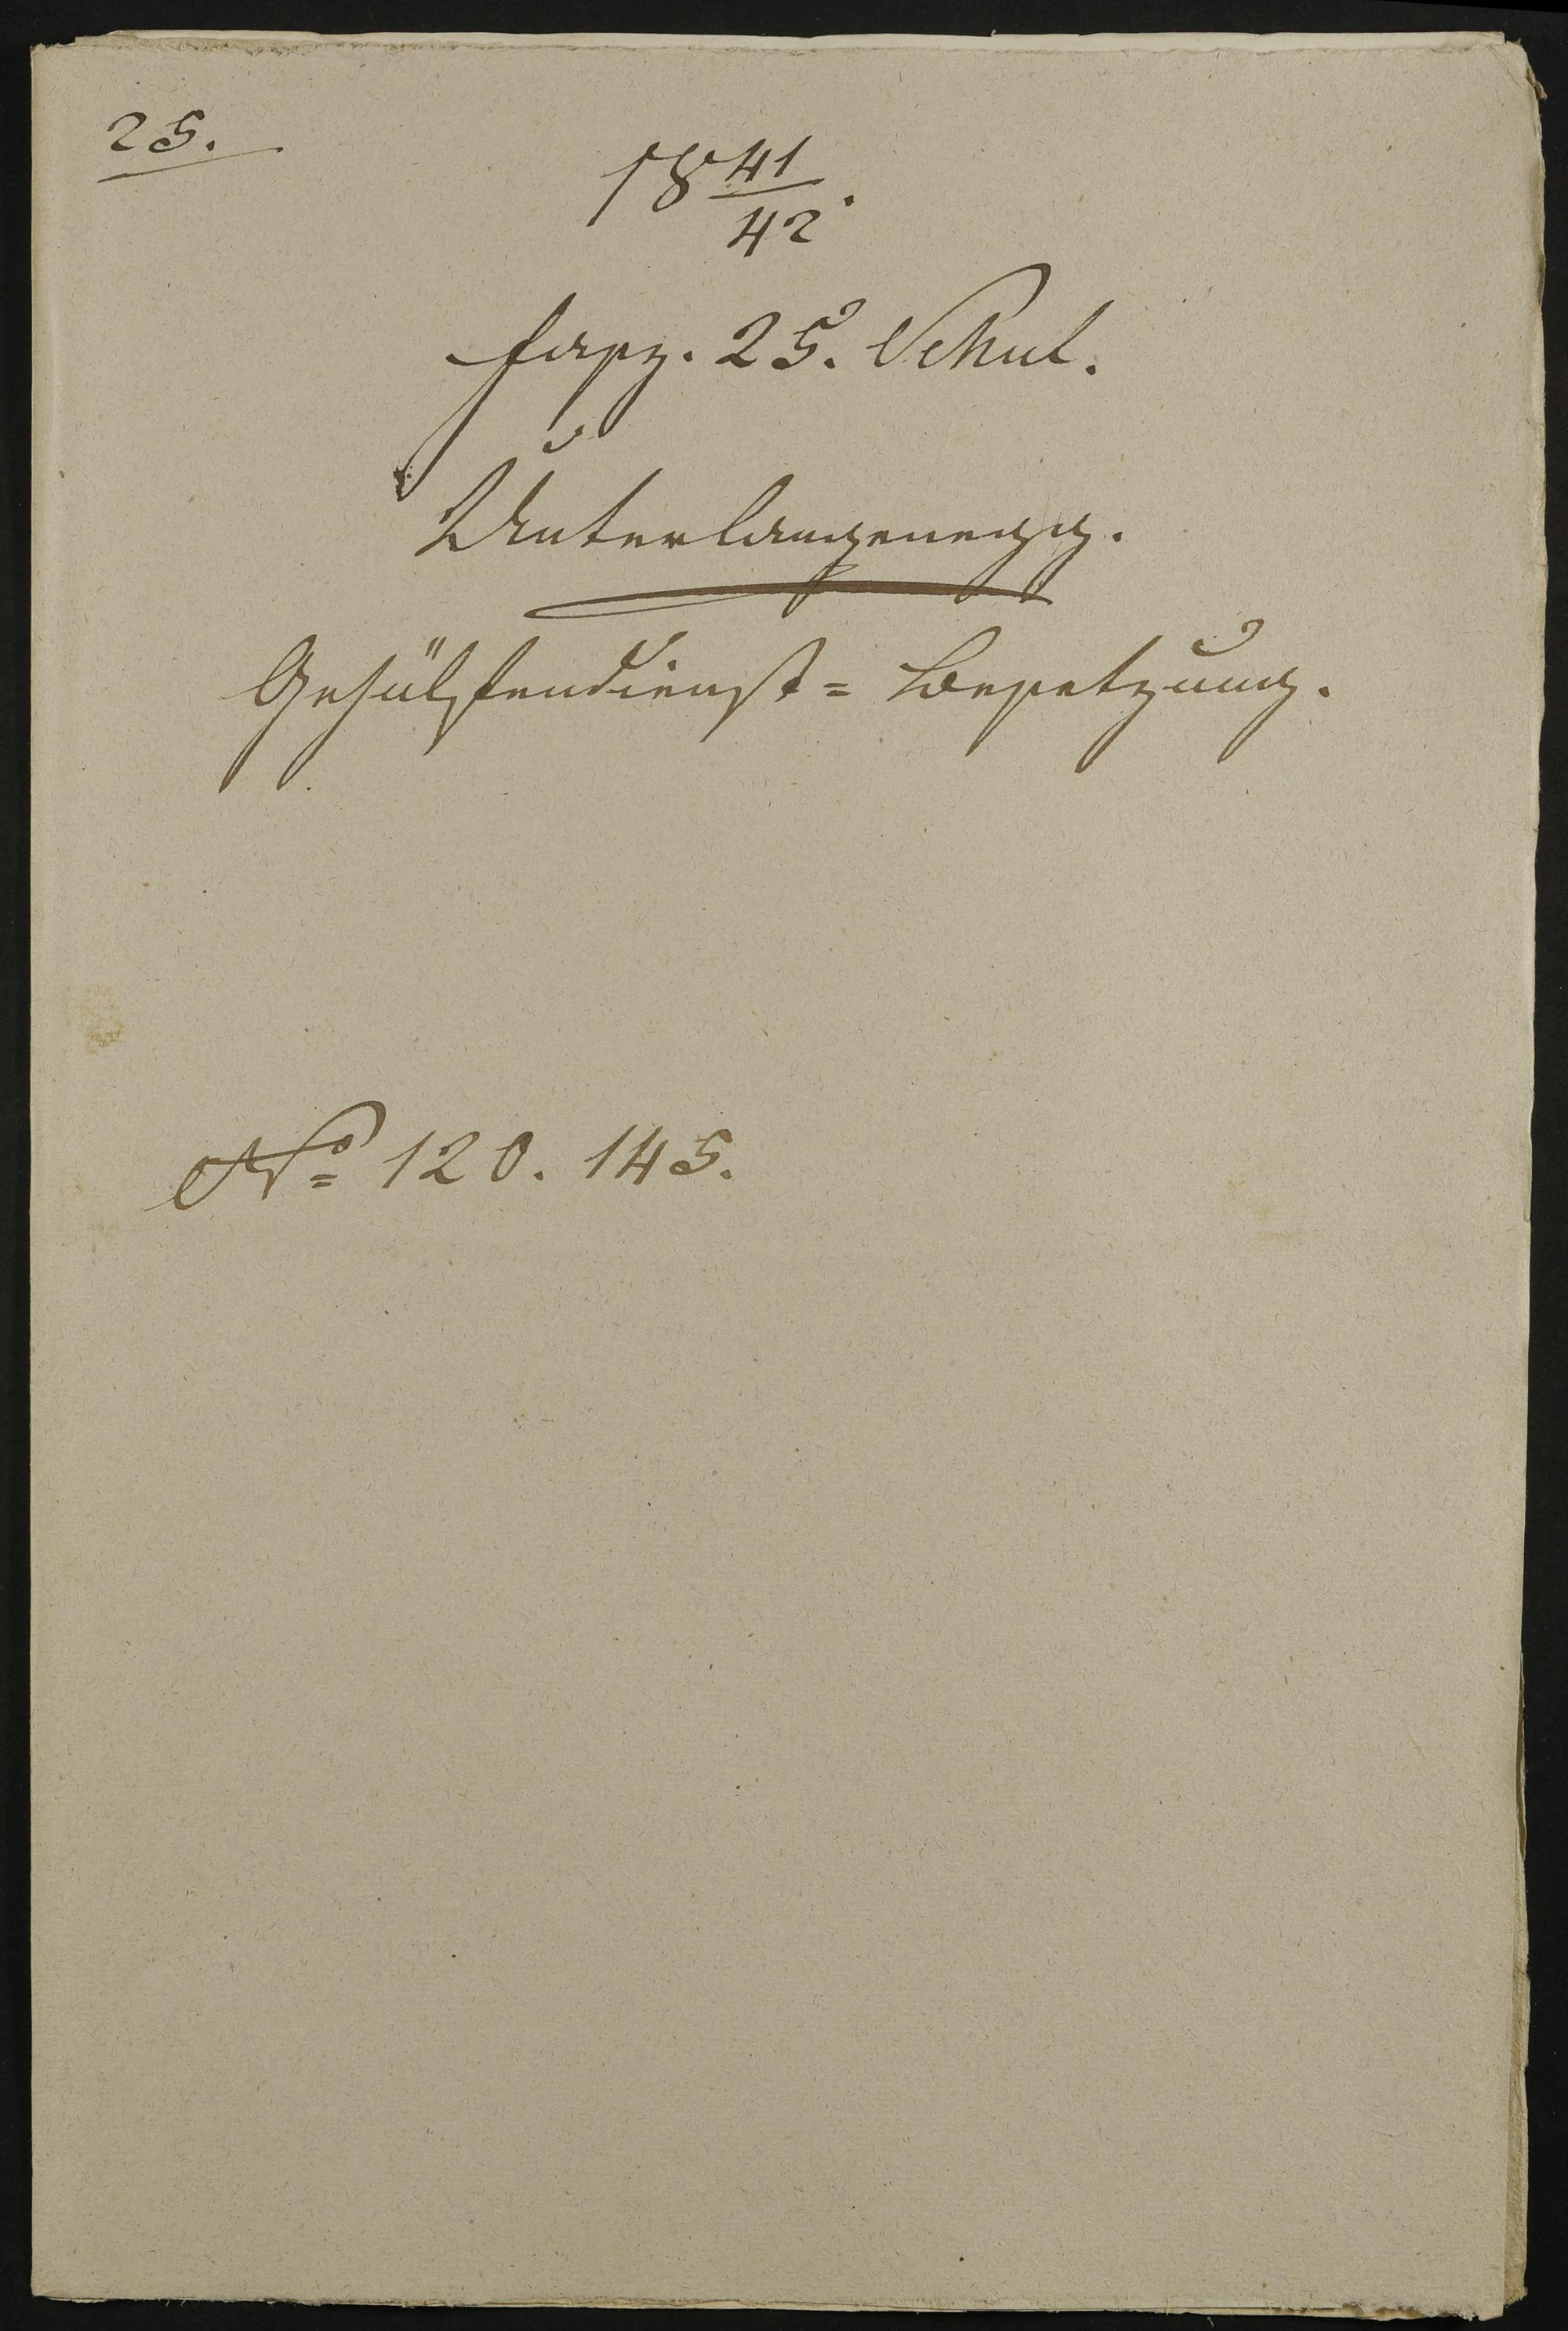 25.
18 41/42.
Fasz. 25. Schul.
Unterlangenegg.
Gehülfendienst=Besetzung.
No 120. 145.